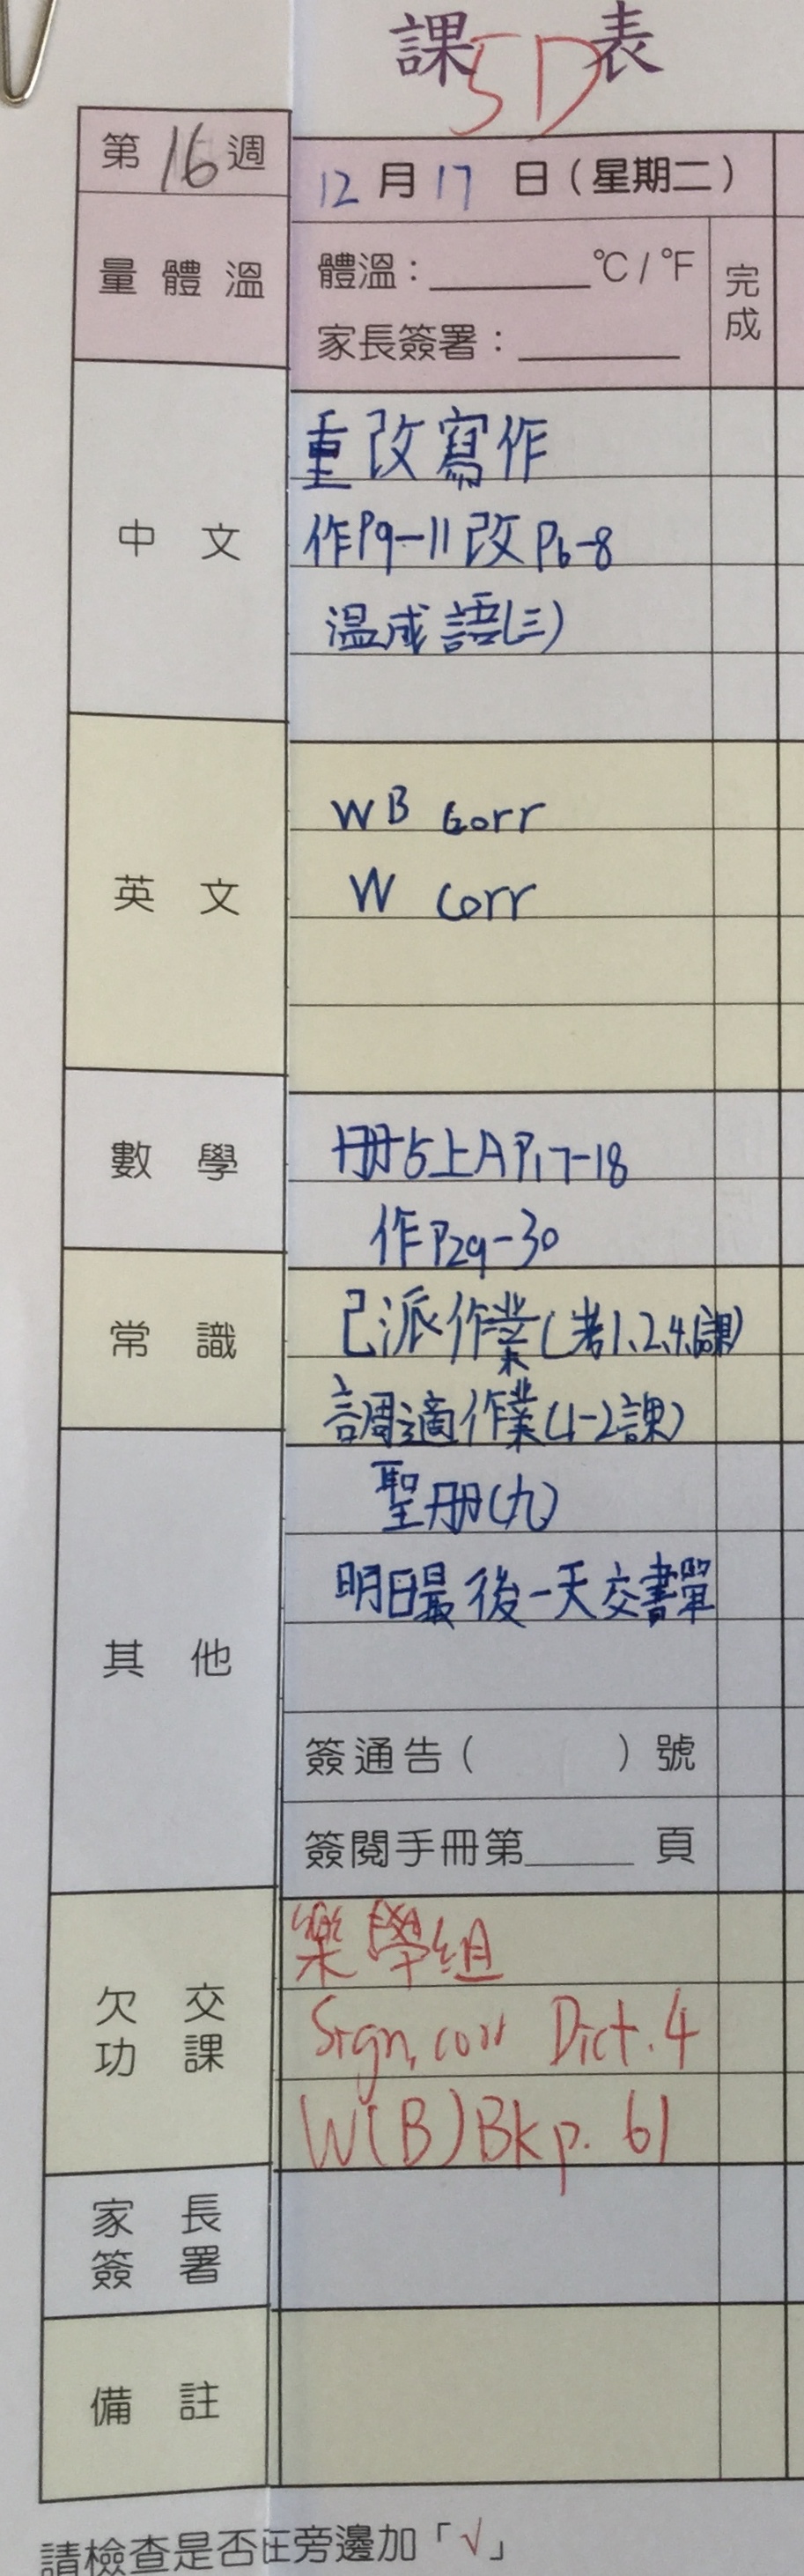 課 5D 表
第 16 週
12 月 17 日（星期二）
量體溫
體溫：______°C / °F
家長簽署：______
完成
中文
重改寫作
作P9-11改P6-8
溫成語(三)
英文
WB Corr
W Corr
數學
冊5上A P.17-18
作P29-30
常識
已派作業(考1、2、4、課)
調適作業(1-2課)
其他
聖冊(九)
明日最後一天交書單
簽通告（ ）號
簽閱手冊第____頁
欠交功課
樂學組
Sign, corr Dict. 4
W(B)Bk p. 61
家長簽署
備註
請檢查是否在旁邊加「√」